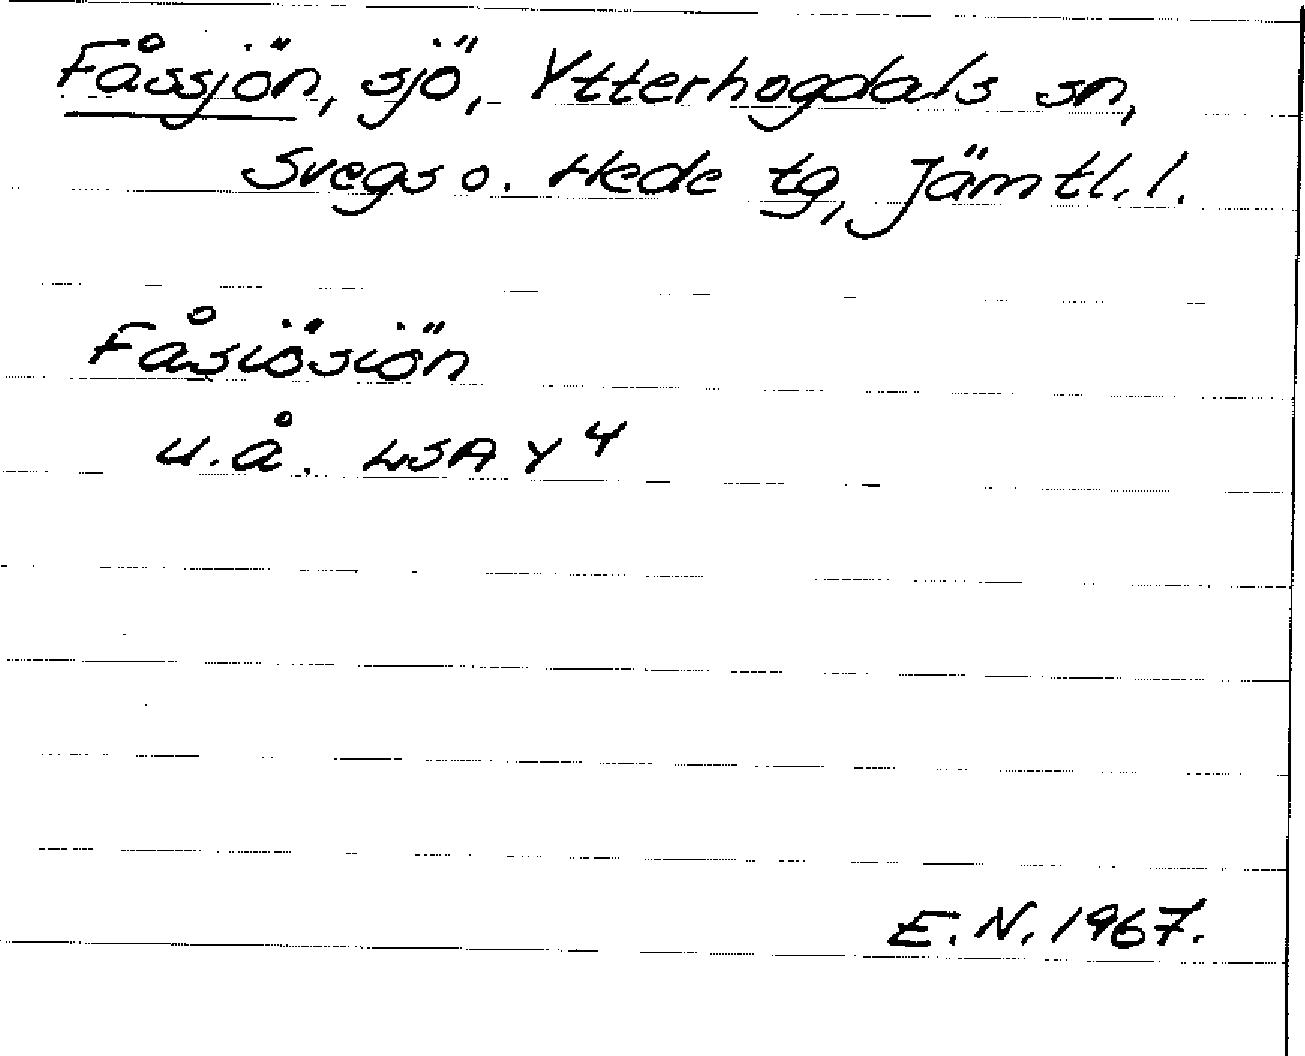 Fåssjön, sjö, Ytterhogdals sn,
Svegs o. Hede tg, Jämtl. l.
Fåsiösiön
u.å. LSA Y 4
E. N. 1967.